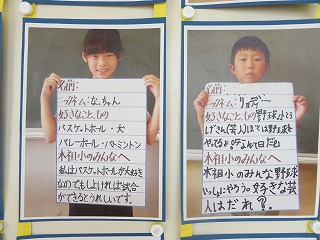 名前:
ニックネーム:なっちゃん
好きなこと、もの
バスケットボール・犬
バレーボール・バトミントン
木祖小のみんなへ
私はバスケットボールが大好き
なのでもしよければ試合
ができるとうれしいです。
名前:
ニックネーム:
好きなこと、もの野球小とう
げさん(芸人)ほくは野球を
やってるよ
木祖小のみんなへ
木祖小のみんな野球
いっしょにやろう。好きな芸
人はだれ?。